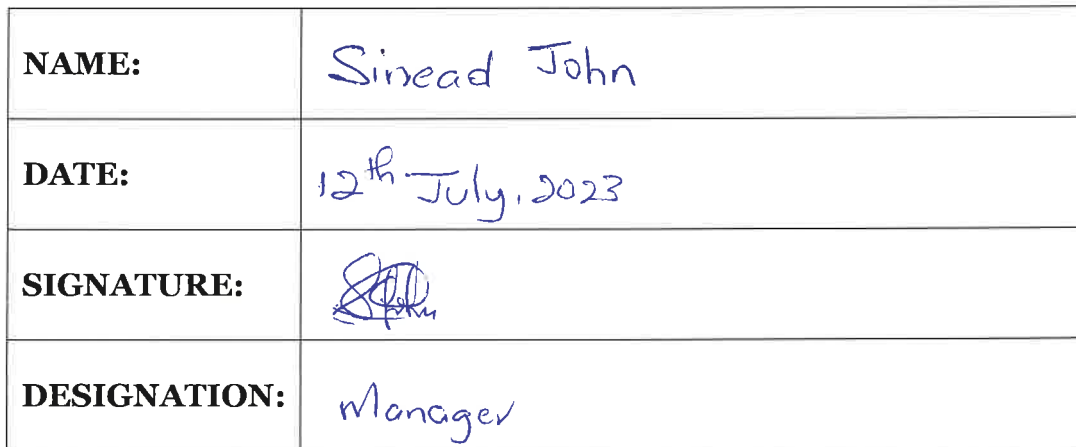 NAME: Sinead John
DATE: 12th July, 2023
SIGNATURE:
DESIGNATION: Manager